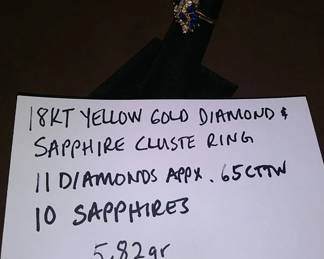 18KT YELLOW GOLD DIAMOND &
SAPPHIRE CLUSTE RING
11 DIAMONDS APPX .65CTTW
10 SAPPHIRES
5.82gr